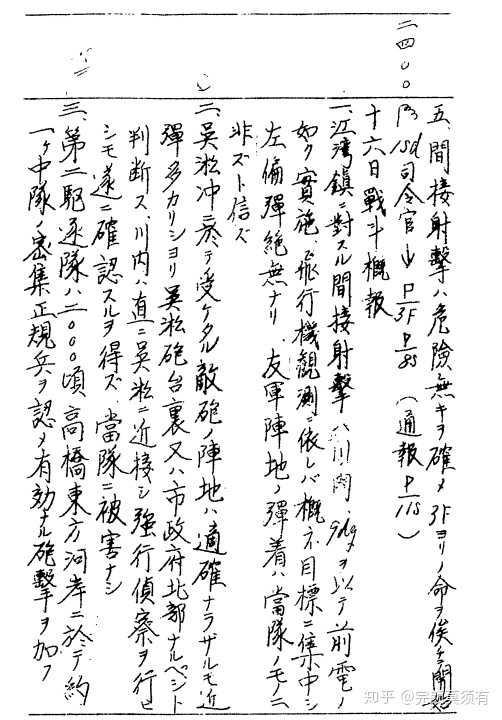 五、間接射撃ハ危險無キヲ確メ3Fヨリノ命ヲ俟テ開始
二四〇〇
1Sd司令官
P/3F P/8S (通報P/11S)
十六日戰斗概報
一、江湾鎮ニ對スル間接射撃ハ川内、9dgヲ以テ前電ノ
如ク實施、飛行機観測ニ依レバ概ネ目標ニ集中シ
左偏彈絶無ナリ 友軍陣地ノ彈着ハ當隊ノモノニ
非ズト信ズ
二、吴淞冲ニ於テ受ケタル敵砲ノ陣地ハ適確ナラザルモ近
彈多カリシヨリ吴淞砲台裏又ハ市政府北部ナルベシト
判断ス、川内ハ直ニ吴淞ニ近接シ強行偵察ヲ行ヒ
シモ遂ニ確認スルヲ得ズ、當隊ニ被害ナシ
三、第二駆逐隊ハ二〇〇〇頃高橋東方河岸ニ於テ約
一ケ中隊ノ密集正規兵ヲ認メ有効ナル砲撃ヲ加フ
知乎 @完颜莫须有